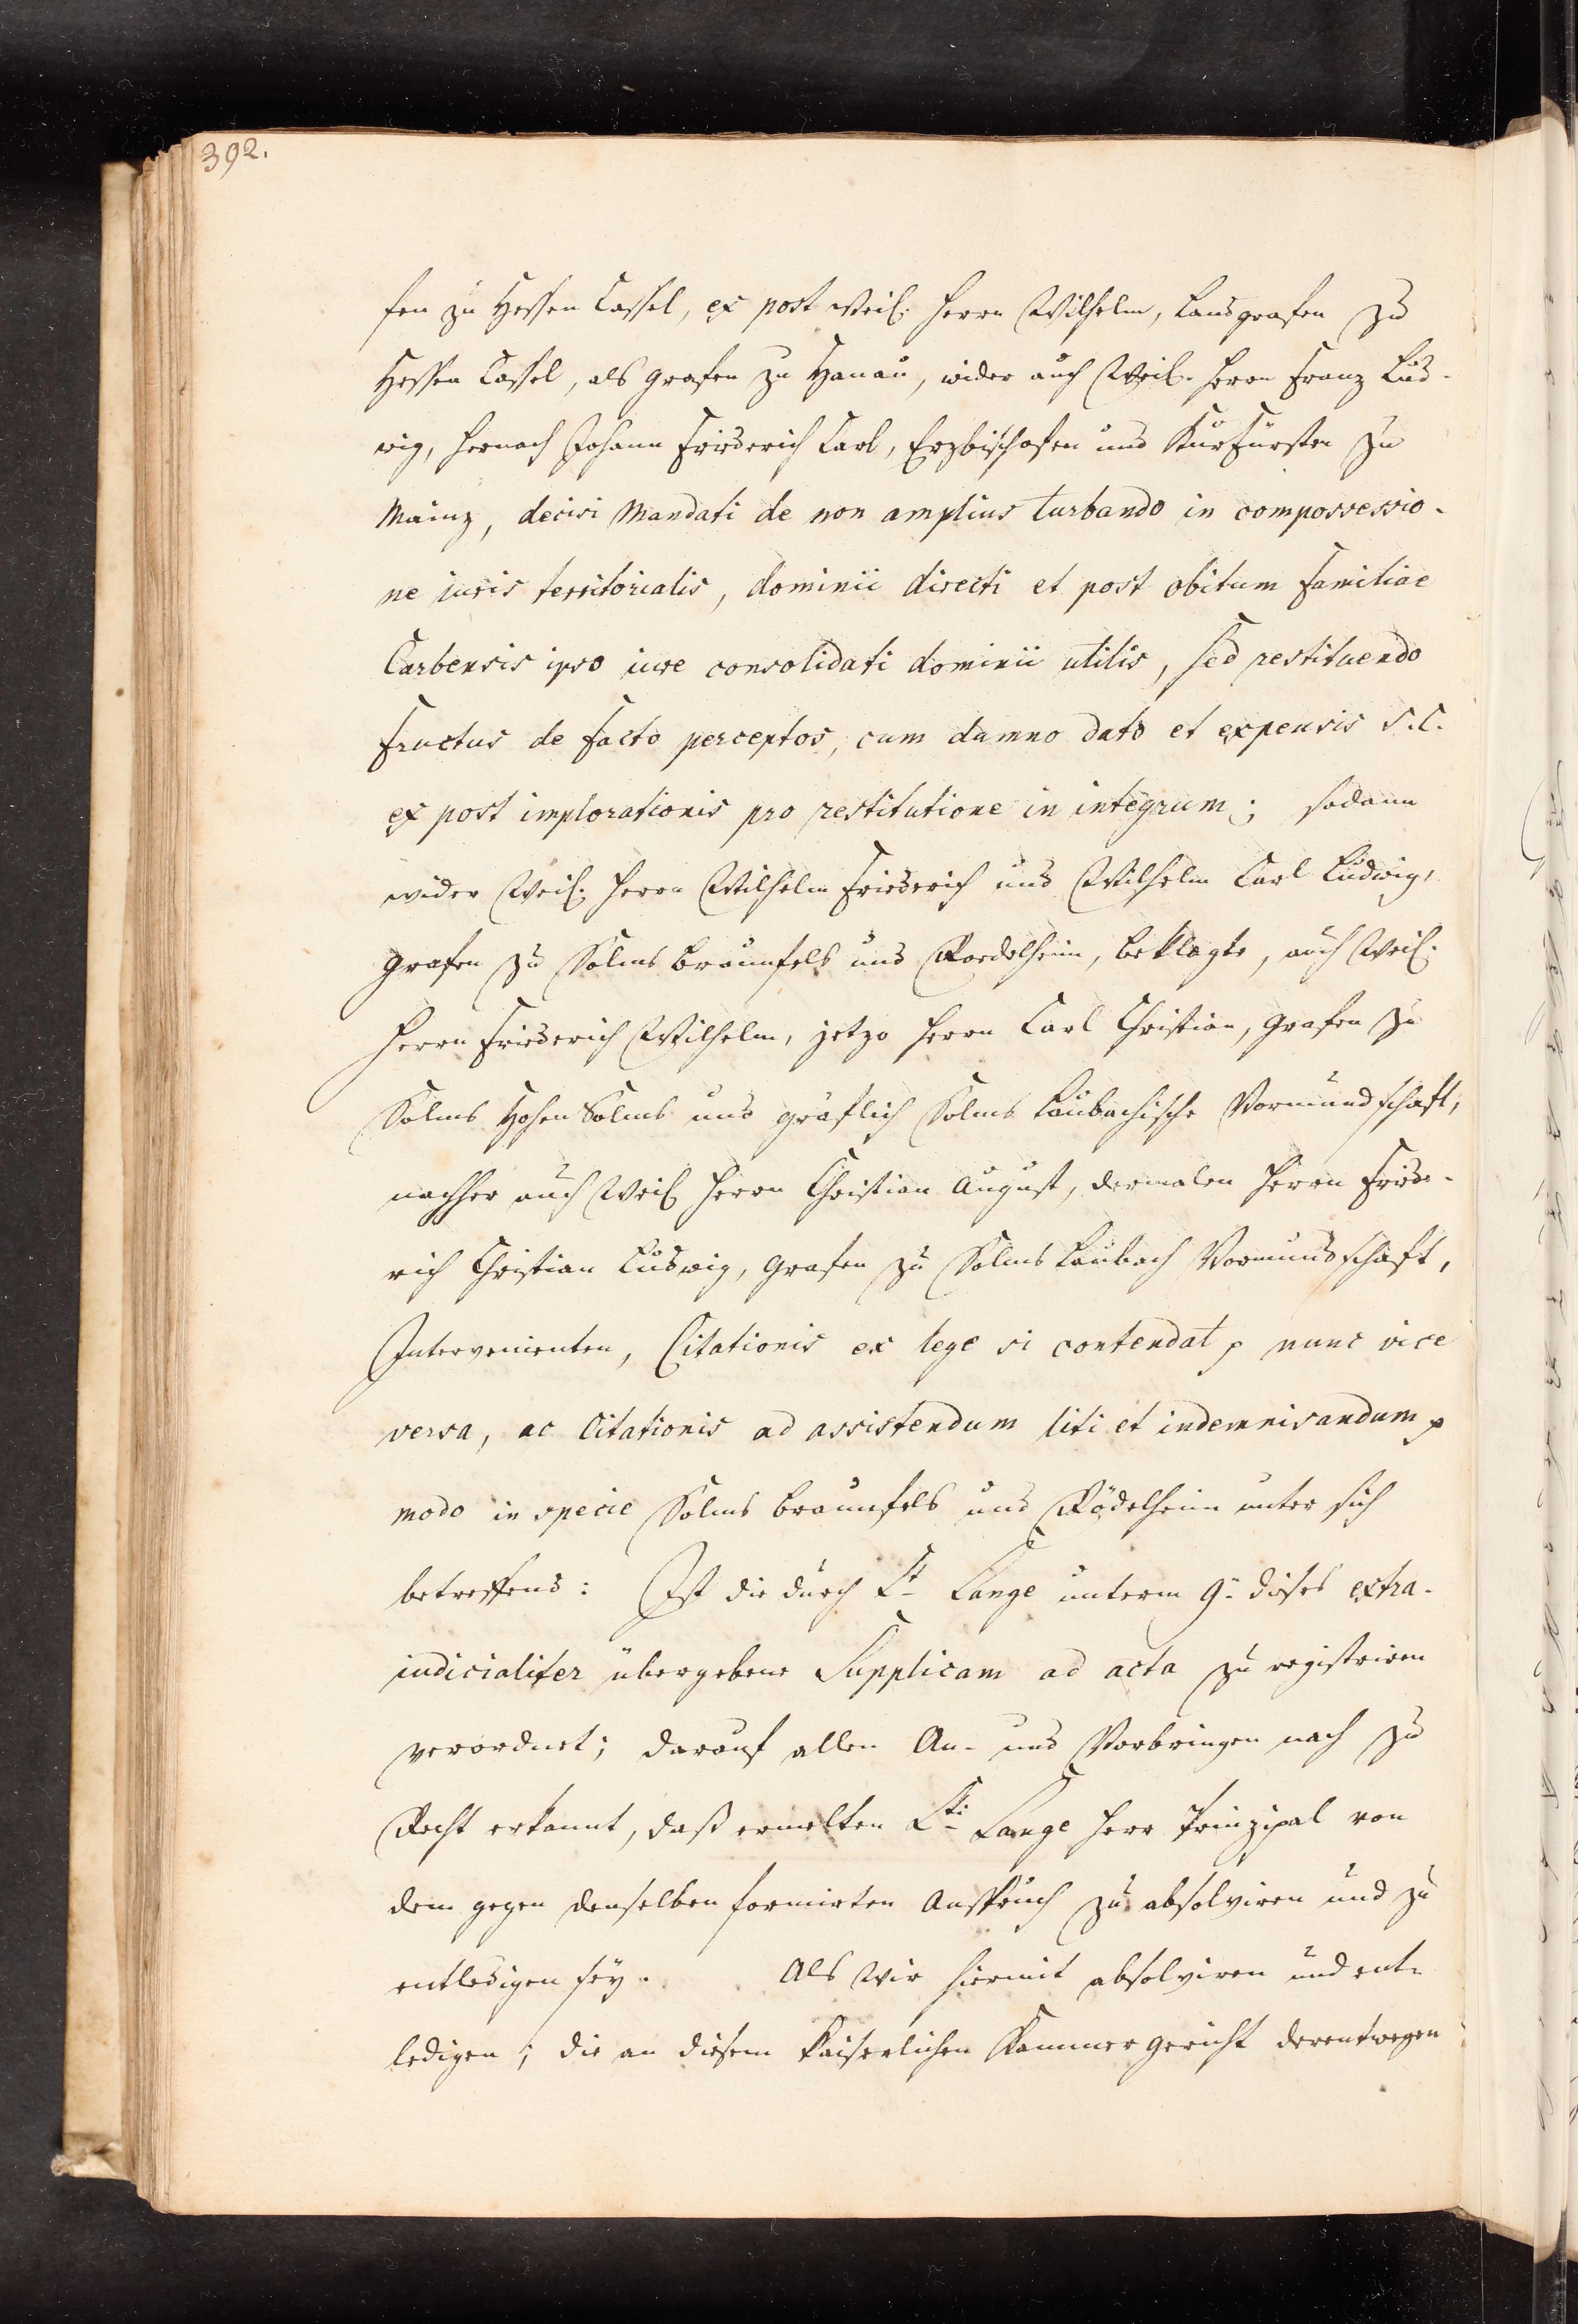 392.
fen zu Hessen Cassel, ex post Weil. Herrn Wilhelm, Landgrafen zu
Hessen Cassel, als Grafen zu Hanau, wider auch Weil. Herrn Franz Lud-
wig, hernach Johann Friederich Carl, Erzbischofen und Kurfürsten zu
Mainz, decisi Mandati de non amplius turbando in compossessio-
ne iuris territorialis, dominii directi et post obitum familiae
Carbensis ipso iure consolidati dominii utilis, sed restituendo
fructus de facto perceptos, cum damno dato et expensis S. C.
ex post implorationis pro restitutione in integrum; sodann
wider Weil. Herrn Wilhelm Friederich und Wilhelm Carl Ludwig,
Grafen zu Solms Braunfels und Roedelheim, Beklagte, auch Weil.
Herrn Friederich Wilhelm, jetzo Herrn Carl Christian, Grafen zu
Solms Hohen Solms und gräflich Solms Laubachische Vormundschaft,
nachher auch Weil Herrn Christian August, dermalen Herrn Friede-
rich Christian Ludwig, Grafen zu Solms Laubach Vormundschaft,
Intervenienten, Citationis ex lege si contendat p nunc vice
versa, ac Citationis ad assistendum liti et indemnisandum p
modo in specie Solms Braunfels und Rödelheim unter sich
betreffend: Ist die durch Lt Lange unterm 9- dieses extra-
iudicialiter übergebene Supplicam ad acta zu registriren
verordnet; darauf allen An- und Vorbringen nach zu
Recht erkannt, daß ermelten Lti: Lange Herr Prinzipal von
dem gegen denselben formirten Anspruch zu absolviren und zu
entledigen sey. Als Wir hiermit absolviren und ent-
ledigen; die an diesem Kaiserlichen Kammergericht derentwegen